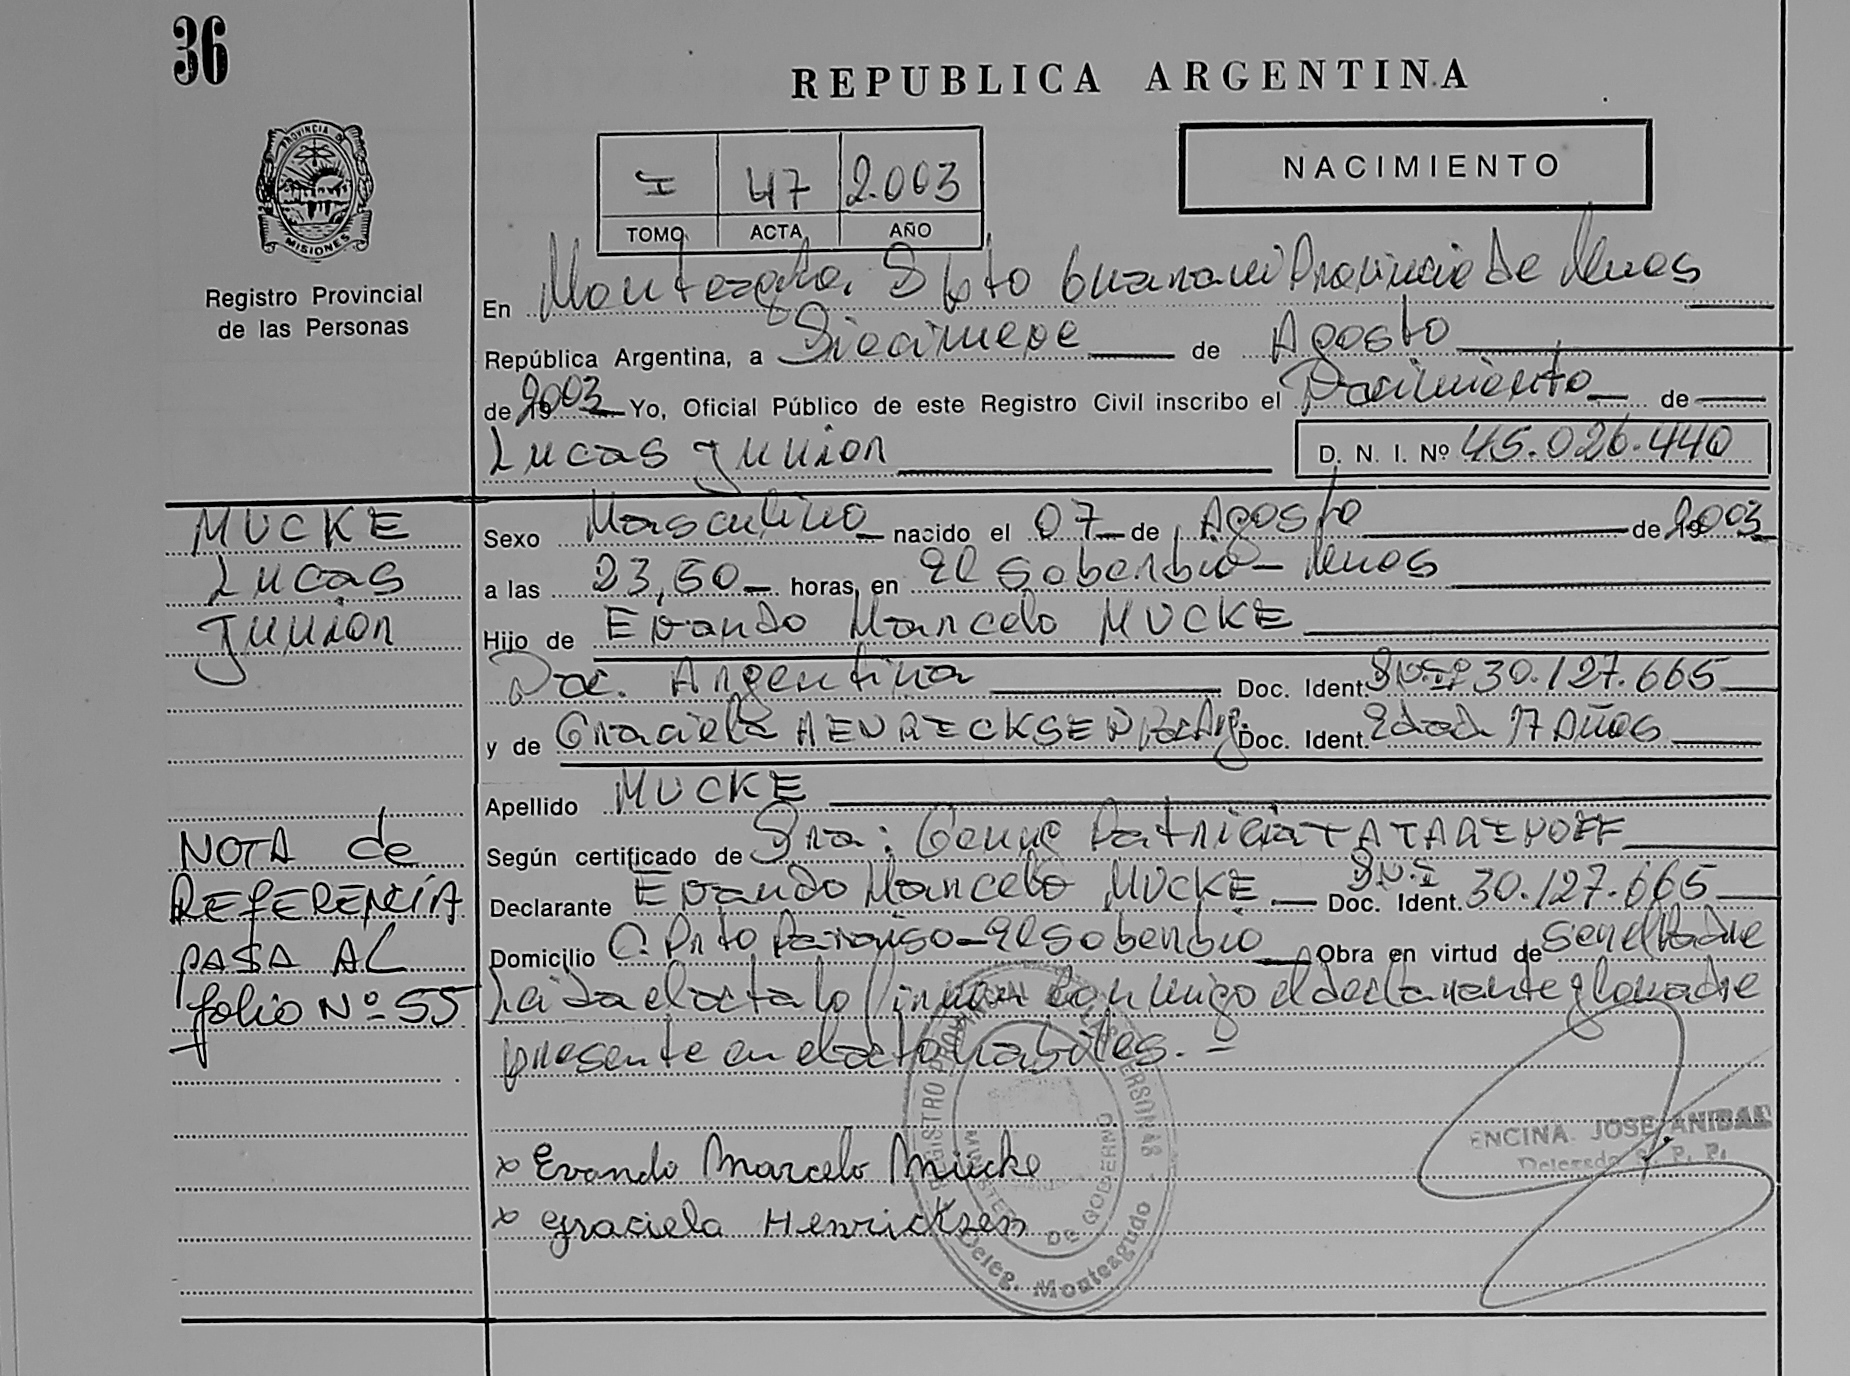 36
REPUBLICA ARGENTINA
PROVINCIA DE
MISIONES
Registro Provincial
de las Personas
I 47 2.003
TOMO ACTA AÑO
NACIMIENTO
En Monteagudo, Dpto Guarani Provincia de Mnes
República Argentina, a Diecinueve de Agosto
de 2003 Yo, Oficial Público de este Registro Civil inscribo el Nacimiento de
Lucas Junior
D. N. I. Nº 45.026.440
MUCKE
Lucas
Junior
Sexo Masculino nacido el 07 de Agosto de 2003
a las 23,50 horas, en El Soberbio - Mnes
Hijo de Evando Marcelo MUCKE
Nac. Argentina Doc. Ident. 30.127.665
y de Graciela HENRICKSEN Nac Arg. Doc. Ident. Edad 17 Años
Apellido MUCKE
Según certificado de Sra: Patricia TATARENOFF
Declarante Evando Marcelo MUCKE Doc. Ident. D.N.I 30.127.665
Domicilio C. Pnto Paraiso - El Soberbio Obra en virtud de Ser el Padre
Leida el acta lo firman conmigo el declarante y la madre
presente en el acto
NOTA de
REFERENCIA
PASA AL
folio Nº 55
x Evando Marcelo Mücke
x Graciela Henricksen
REGISTRO PROVINCIAL DE LAS PERSONAS
MINISTERIO DE GOBIERNO
Deleg. Monteagudo
ENCINA JOSE ANIBAL
Delegado R. P. P.